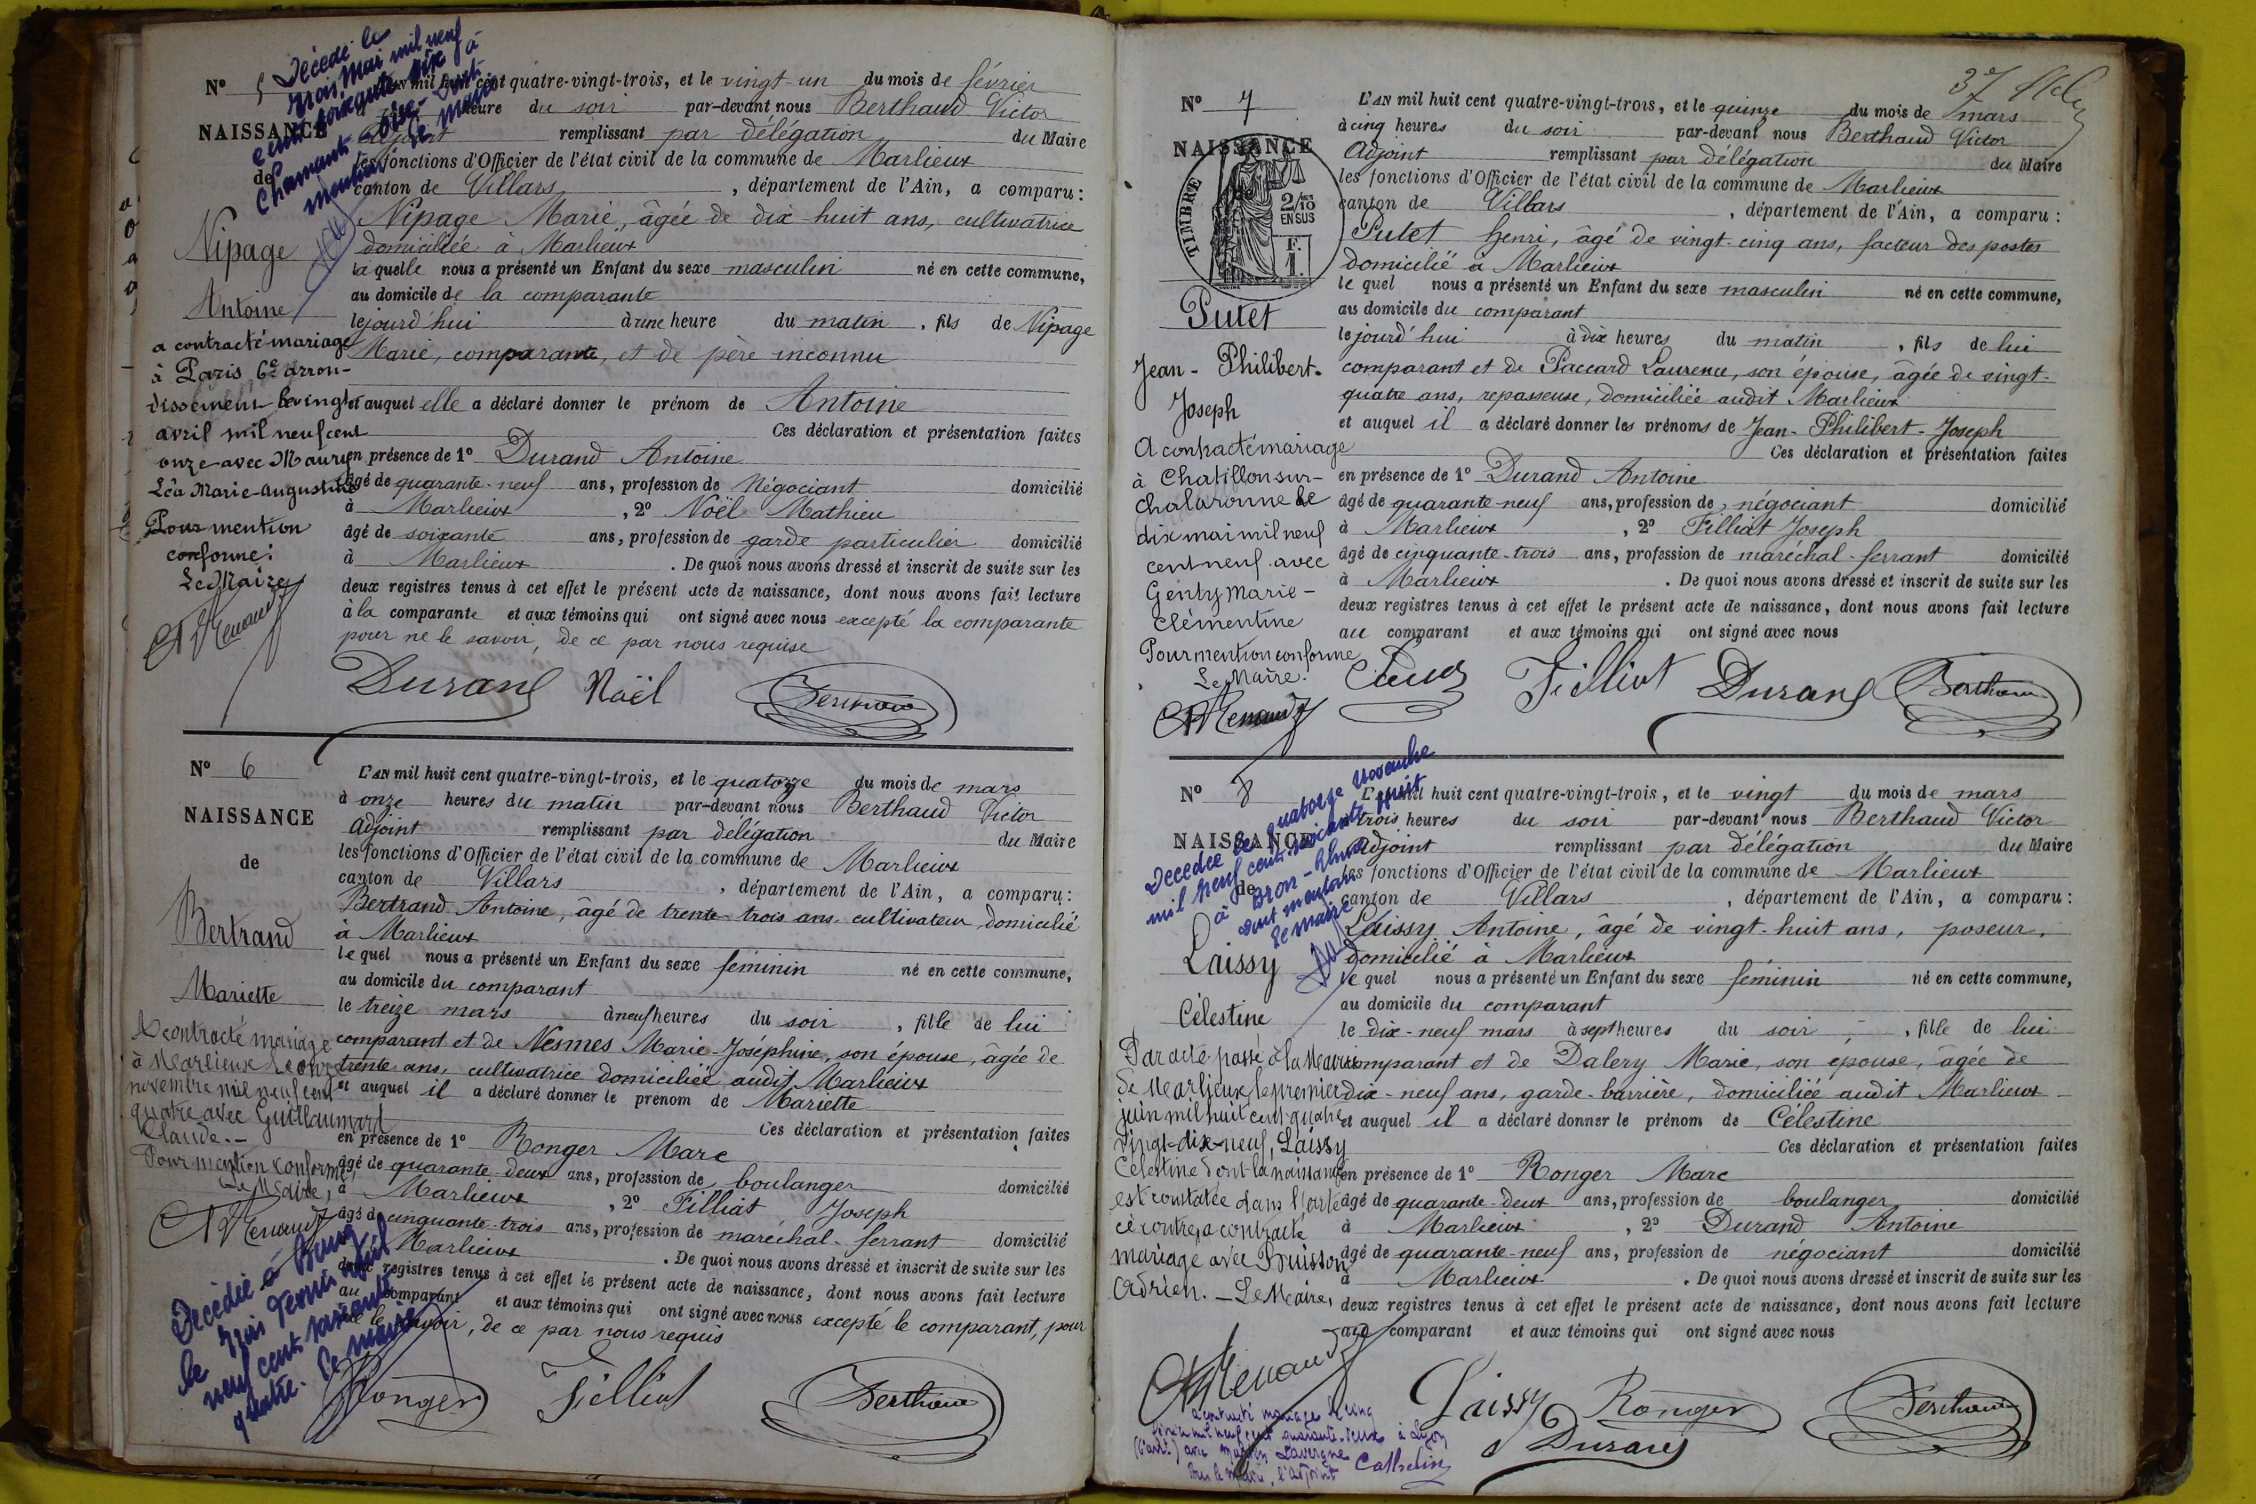 N° 5
NAISSANCE
de
Nipage
Antoine
a contracté mariage
à Paris 6e arron-
dissement le vingt
avril mil neuf cent
onze avec Maury
Léa Marie-Augustine
Pour mention
conforme:
Le Maire
Décédé le
trois Mai mil neuf
cent cinquante six à
Chamant Oise
mention
le maire
mil huit cent quatre-vingt-trois, et le vingt-un du mois de février
heure du soir par-devant nous Berthaud Victor
adjoint remplissant par délégation du Maire
les fonctions d'Officier de l'état civil de la commune de Marlieux
canton de Villars, département de l'Ain, a comparu:
Nipage Marie, âgée de dix huit ans, cultivatrice
domiciliée à Marlieux
la quelle nous a présenté un Enfant du sexe masculin né en cette commune,
au domicile de la comparante
le jourd'hui à une heure du matin, fils de Nipage
Marie, comparante, et de père inconnu
et auquel elle a déclaré donner le prénom de Antoine
Ces déclaration et présentation faites
en présence de 1° Durand Antoine
âgé de quarante-neuf ans, profession de Négociant domicilié
à Marlieux, 2° Noël Mathieu
âgé de soixante ans, profession de garde particulier domicilié
à Marlieux. De quoi nous avons dressé et inscrit de suite sur les
deux registres tenus à cet effet le présent acte de naissance, dont nous avons fait lecture
à la comparante et aux témoins qui ont signé avec nous excepté la comparante
pour ne le savoir, de ce par nous requise
Durand Noël Berthaud
N° 6
NAISSANCE
de
Bertrand
Mariette
A contracté mariage
à Marlieux le onze
novembre mil neuf cent
quatre avec Guillaumard
Claude.-
Pour mention conforme,
Le Maire,
Décédée à Bourg
le trois
neuf cent soixante
quatre. Le maire
L'AN mil huit cent quatre-vingt-trois, et le quatorze du mois de mars
à onze heures du matin par-devant nous Berthaud Victor
adjoint remplissant par délégation du Maire
les fonctions d'Officier de l'état civil de la commune de Marlieux
canton de Villars, département de l'Ain, a comparu:
Bertrand Antoine, âgé de trente-trois ans cultivateur, domicilié
à Marlieux
le quel nous a présenté un Enfant du sexe féminin né en cette commune,
au domicile du comparant
le treize mars à neuf heures du soir, fille de lui
comparant et de Nesmes Marie-Joséphine, son épouse, âgée de
trente ans, cultivatrice domiciliée audit Marlieux
et auquel il a déclaré donner le prénom de Mariette
Ces déclaration et présentation faites
en présence de 1° Ronger Marc
âgé de quarante-deux ans, profession de boulanger domicilié
à Marlieux, 2° Filliat Joseph
âgé de cinquante-trois ans, profession de maréchal-ferrant domicilié
Marlieux. De quoi nous avons dressé et inscrit de suite sur les
deux registres tenus à cet effet le présent acte de naissance, dont nous avons fait lecture
au comparant et aux témoins qui ont signé avec nous excepté le comparant, pour
ne le savoir, de ce par nous requis
Ronger Filliat Berthaud
37
N° 7
NAISSANCE
TIMBRE
2/10
EN SUS
F.
1.
Putet
Jean-Philibert-
Joseph
A contracté mariage
à Chatillon sur-
Chalaronne le
dix mai mil neuf
cent neuf avec
Genty Marie-
Clémentine
Pour mention conforme
Le Maire.
L'AN mil huit cent quatre-vingt-trois, et le quinze du mois de mars
à cinq heures du soir par-devant nous Berthaud Victor
Adjoint remplissant par délégation du Maire
les fonctions d'Officier de l'état civil de la commune de Marlieux
canton de Villars, département de l'Ain, a comparu:
Putet Henri, âgé de vingt-cinq ans, facteur des postes
domicilié à Marlieux
le quel nous a présenté un Enfant du sexe masculin né en cette commune,
au domicile du comparant
le jourd'hui à dix heures du matin, fils de lui
comparant et de Paccard Laurence, son épouse, âgée de vingt-
quatre ans, repasseuse, domiciliée audit Marlieux
et auquel il a déclaré donner les prénoms de Jean-Philibert-Joseph
Ces déclaration et présentation faites
en présence de 1° Durand Antoine
âgé de quarante-neuf ans, profession de négociant domicilié
à Marlieux, 2° Filliat Joseph
âgé de cinquante-trois ans, profession de maréchal-ferrant domicilié
à Marlieux. De quoi nous avons dressé et inscrit de suite sur les
deux registres tenus à cet effet le présent acte de naissance, dont nous avons fait lecture
au comparant et aux témoins qui ont signé avec nous
Filliat Durand Berthaud
N° 8
NAISSANCE
de
Laissy
Célestine
Décédée le quatorze novembre
mil neuf cent soixante huit
à Bron-Rhône
dont mention
Le maire
Par acte passé à la Mairie
de Marlieux le premier
juin mil huit cent quatre
vingt-dix-neuf, Laissy
Célestine dont la naissance
est constatée dans l'acte
ci contre, a contracté
mariage avec Buisson
Adrien.-Le Maire,
L'AN mil huit cent quatre-vingt-trois, et le vingt du mois de mars
à trois heures du soir par-devant nous Berthaud Victor
Adjoint remplissant par délégation du Maire
les fonctions d'Officier de l'état civil de la commune de Marlieux
canton de Villars, département de l'Ain, a comparu:
Laissy Antoine, âgé de vingt-huit ans, poseur,
domicilié à Marlieux
le quel nous a présenté un Enfant du sexe féminin né en cette commune,
au domicile du comparant
le dix-neuf mars à sept heures du soir, fille de lui
comparant et de Dalery Marie, son épouse, âgée de
dix-neuf ans, garde-barrière, domiciliée audit Marlieux
et auquel il a déclaré donner le prénom de Célestine
Ces déclaration et présentation faites
en présence de 1° Ronger Marc
âgé de quarante-deux ans, profession de boulanger domicilié
à Marlieux, 2° Durand Antoine
âgé de quarante-neuf ans, profession de négociant domicilié
à Marlieux. De quoi nous avons dressé et inscrit de suite sur les
deux registres tenus à cet effet le présent acte de naissance, dont nous avons fait lecture
au comparant et aux témoins qui ont signé avec nous
Laissy Ronger Berthaud
Durand
a contracté mariage le cinq
mil neuf cent quarante-deux à Lyon
avec Lavergne
Pour le Maire, l'adjoint